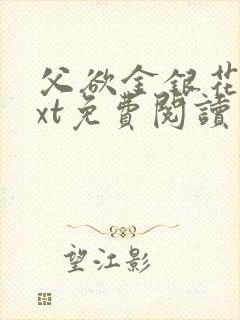 父欲金銀花
xt免費閱讀
望江影